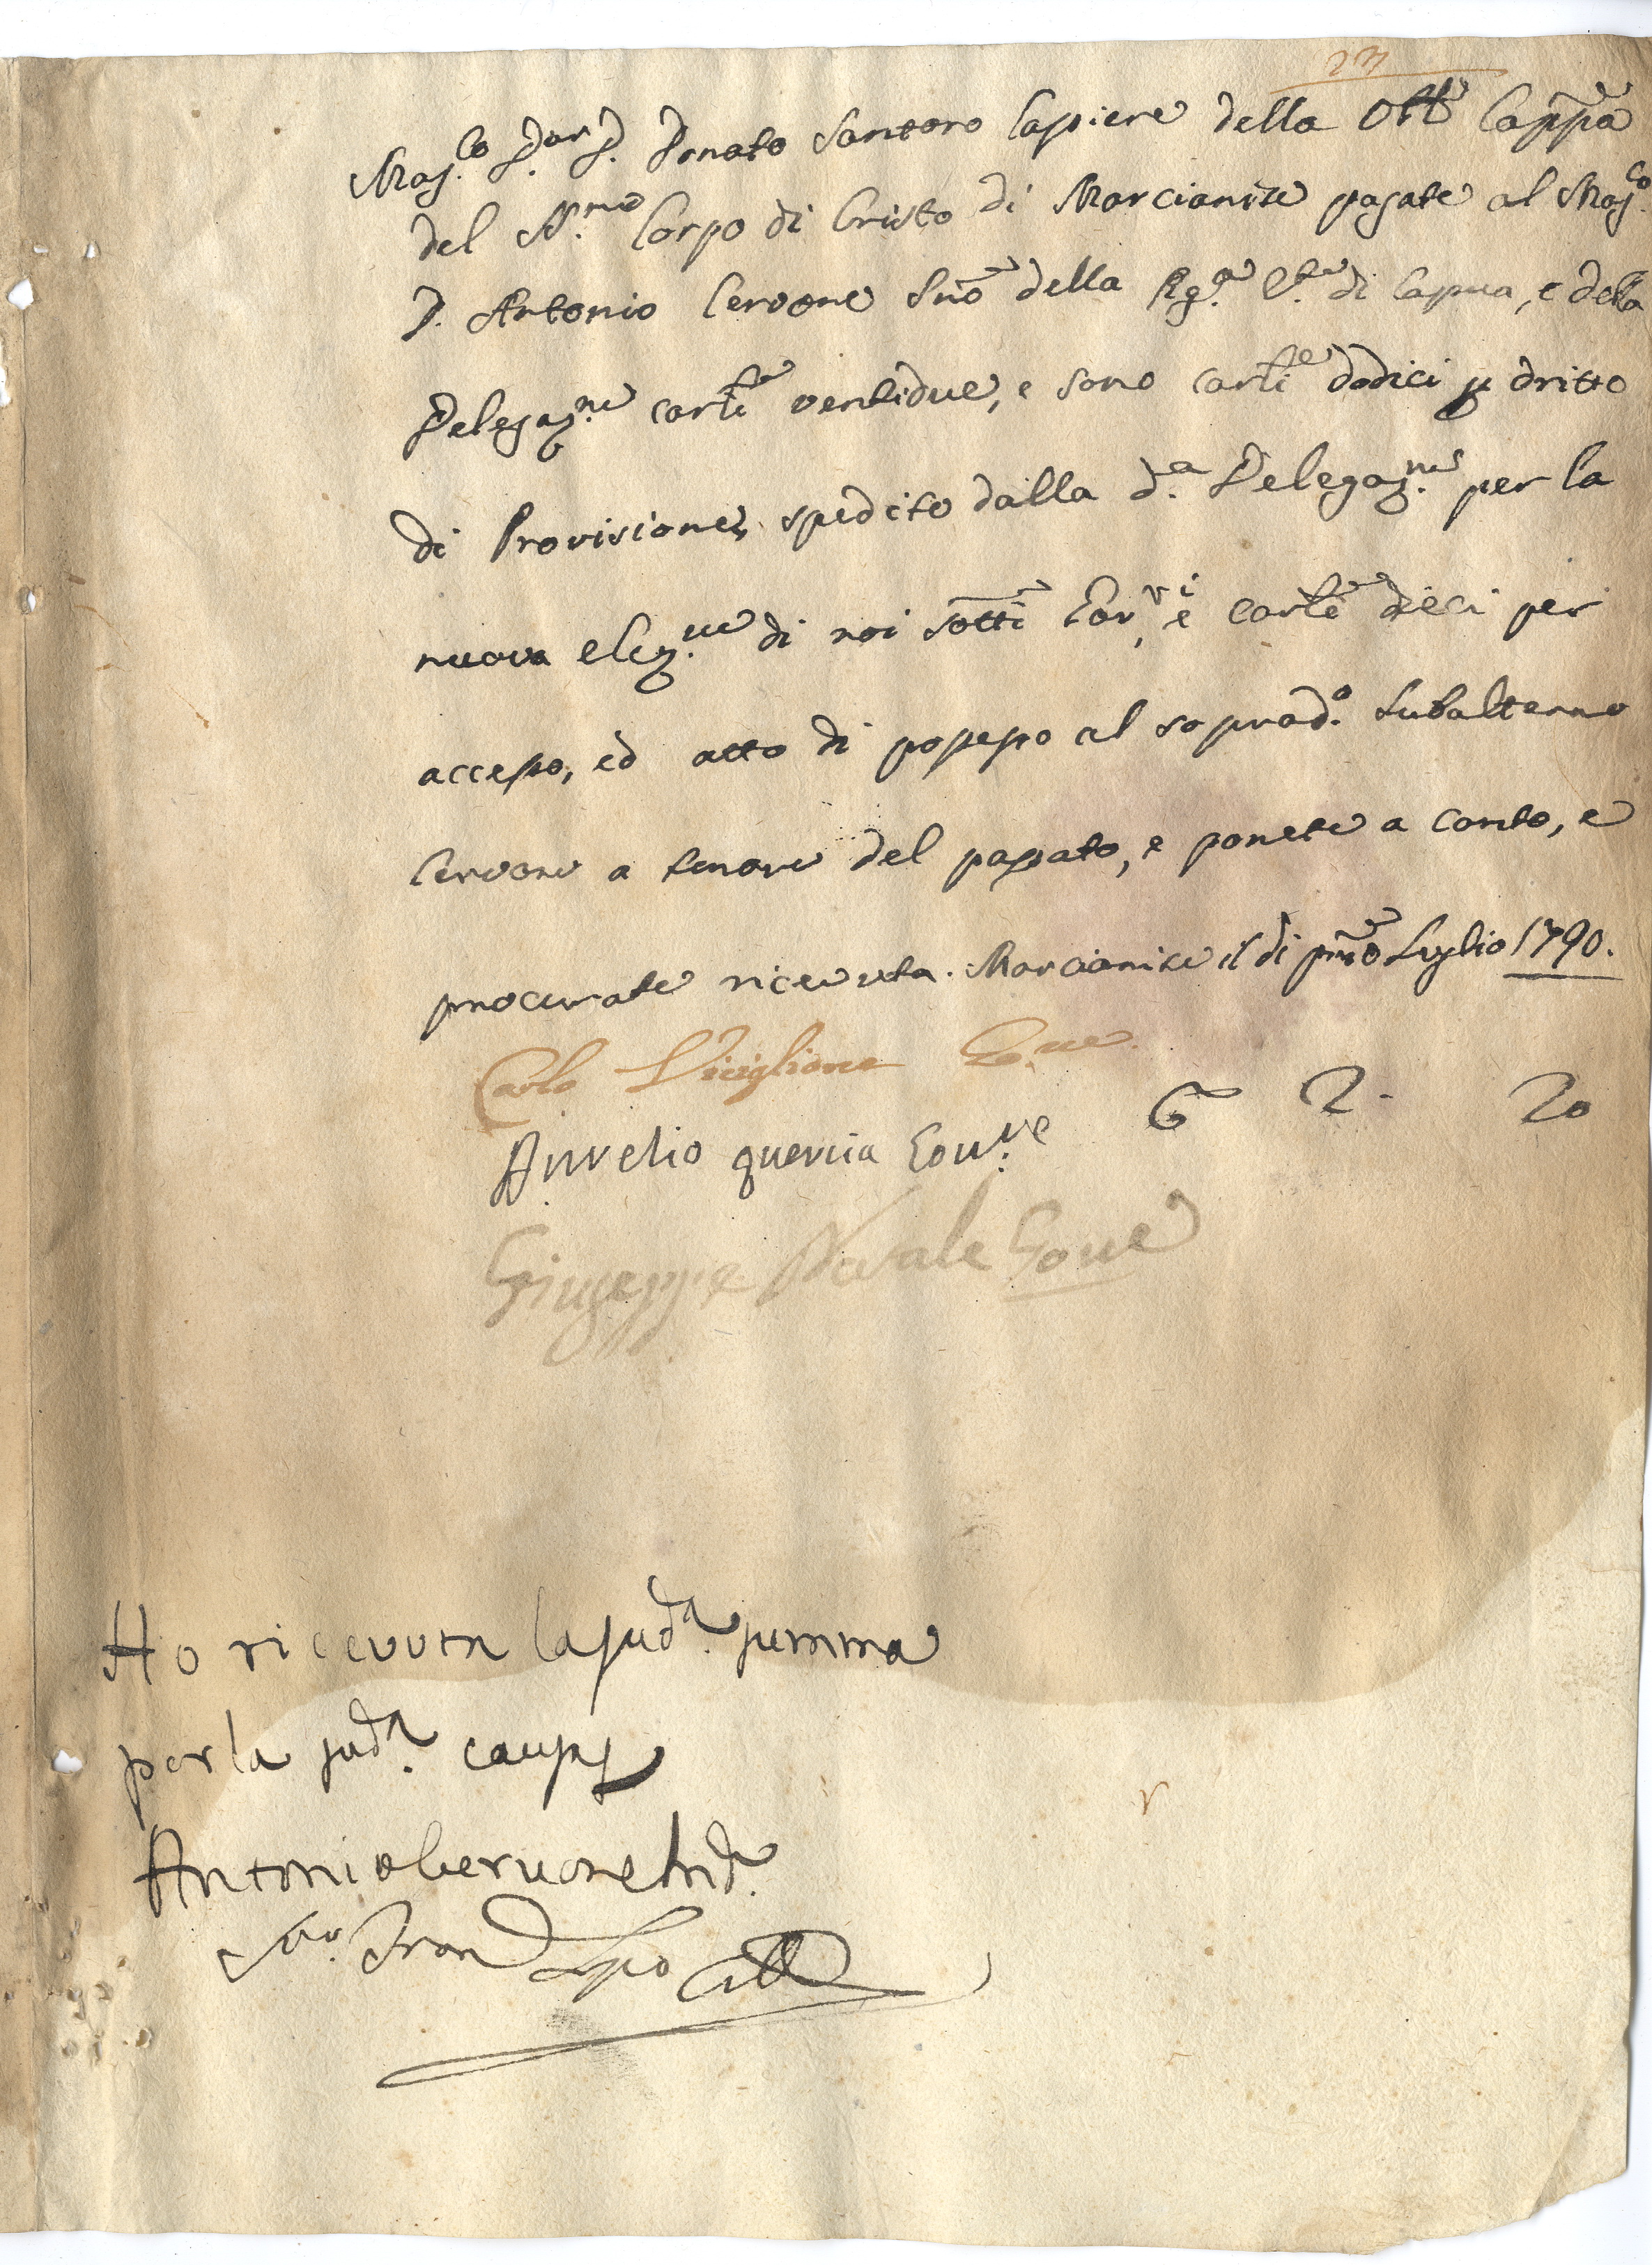 Mag.co D.or D. Donato Santoro Cassiere della Ott.e Cappa
del SS.mo Corpo di Cristo di Marcianise pagate al Mag.co
D. Antonio Cervone Sño della Rg.a C.te di Capua, e della
Delegaz.ne carli ventidue, e sono carli dodici p dritto
di Provisione, spedito dalla d.a Delegaz.ne per la
nuova elez.ne di noi sotti Gov.ri, e carli dieci per
accesso, ed atto di possesso al soprad.o Subalterno
Cervone a tenore del passato, e ponete a conto, e
procurate ricevuta. Marcianise il di pmo Luglio 1790.
Carlo Viciglione G.ne
Aurelio quercia Gov.re 2. 20
Giuseppe Natale Gove
Ho ricevuta la sud.a summa
per la sud.a causa
Antonio Cervone